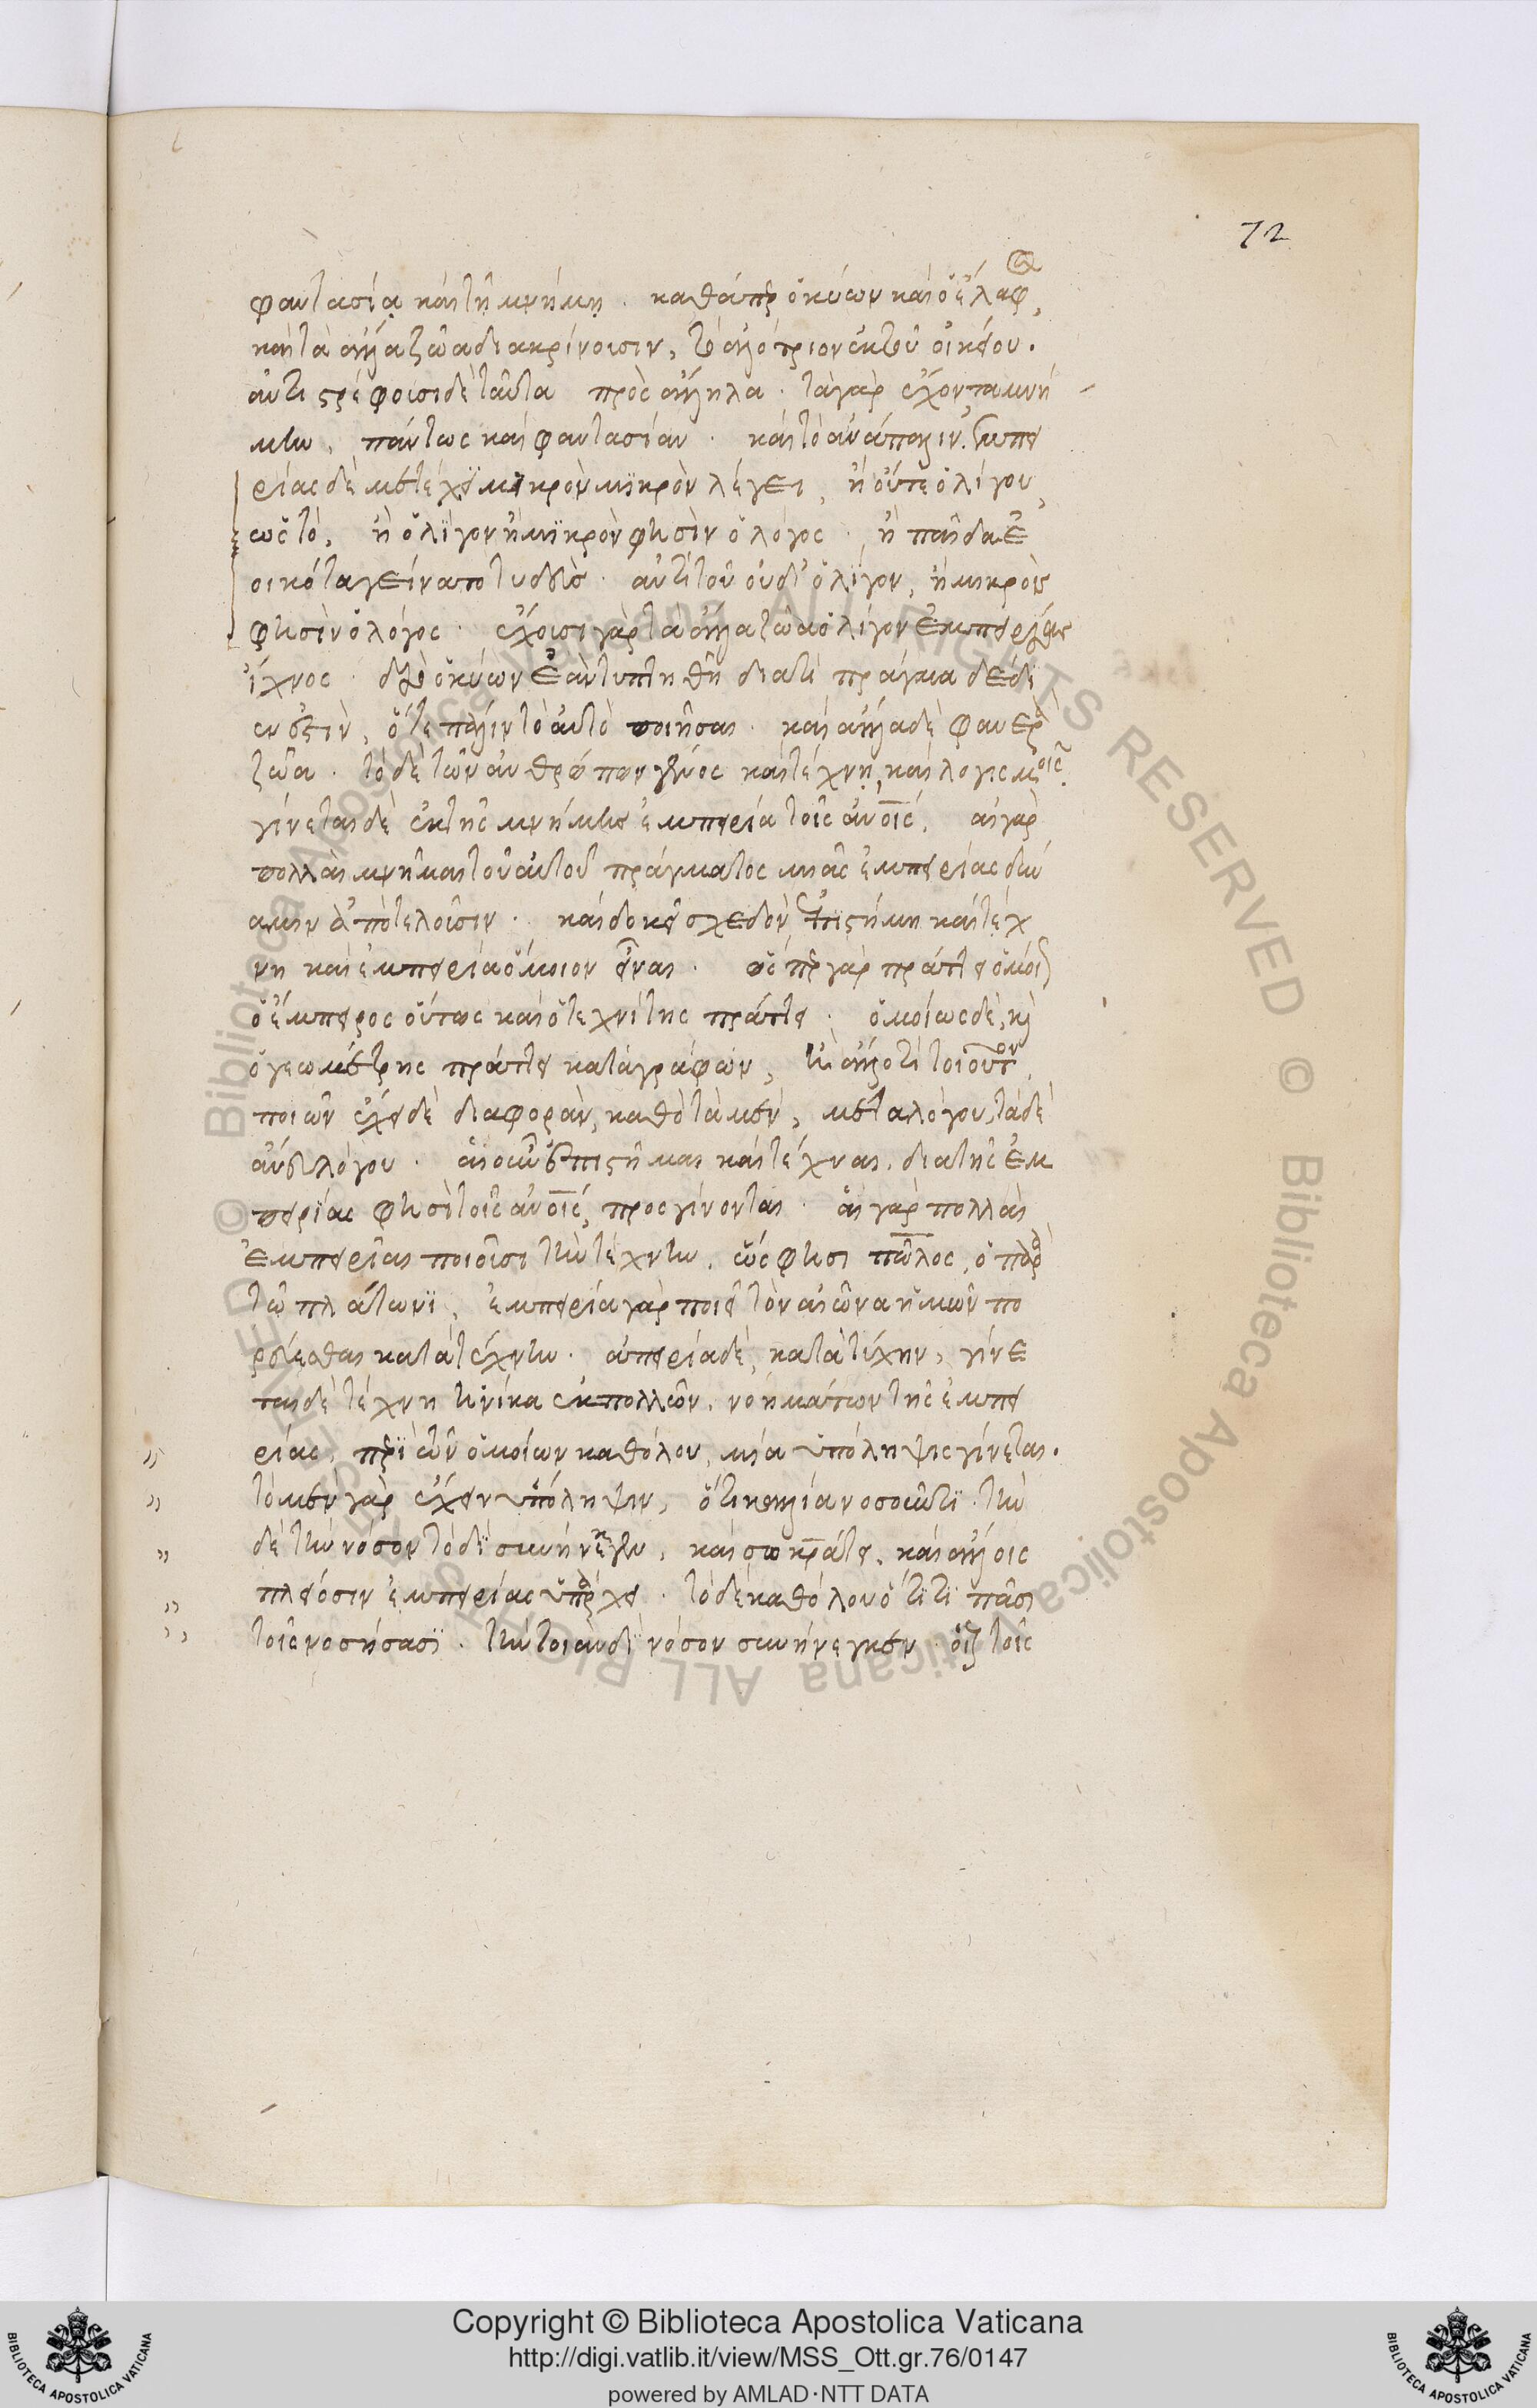 72
φαντασία καὶ τῆ μνήμη. καθάπερ ὁ κύων καὶ ὁ ἔλαφος,
καὶ τὰ ἄλλα ζῶα διακρίνουσιν, τὸ ἀλλότριον ἐκ τοῦ οἰκείου.
ἀντιστρέφουσι δὲ ταῦτα πρὸς ἄλληλα. τὰ γὰρ ἔχοντα μνή
μην, πάντως καὶ φαντασίαν. καὶ τὸ ἀνάπαλιν. ἐμπει
ρίας δὲ μετέχει μικρὸν μικρὸν λέγει, ἢ οὔτε ὀλίγου,
ὡς τὸ, ἢ ὀλίγον ἢ μικρὸν φησὶν ὁ λόγος. ἢ παῖδα ἐ
οικότα γείναπο τυδεύς. ἀντὶ τοῦ οὐδ' ὀλίγον, ἢ μικρὸν
φησὶν ὁ λόγος. ἔχουσι γὰρ τὰ ἄλλα ζῶα ὀλίγον ἐμπειρίας
ἴχνος. ὁ κύων ἐὰν τυπτηθῆ διὰ τὶ πράγμα δέδι
εν πάλιν τὸ αὐτὸ ποιῆσαι. καὶ ἄλλα δὲ φανερὰ
ζῶα. τὸ δὲ τῶν ἀνθρώπων γένος καὶ τέχνη, καὶ λογισμοῖς.
γίνεται δὲ ἐκ τῆς μνήμης ἐμπειρία τοῖς ἀνοις. αἱ γὰρ
πολλαὶ μνῆμαι τοῦ αὐτοῦ πράγματος μιᾶς ἐμπειρίας δύν
αμιν ἀποτελοῦσιν. καὶ δοκεῖ σχεδὸν ἐπιστήμη καὶ τέχ
νη καὶ ἐμπειρία ὅμοιον εἶναι. ὥσπερ γὰρ πράττει
ὁ ἔμπειρος οὕτως καὶ ὁ τεχνίτης πράττει. ὁμοίως δὲ, καὶ
ὁ γεωμέτρης πράττει καταγράφων, ἢ ἄλλό τι τοιοῦτον
ποιῶν ἔχει δὲ διαφορὰν, καθὸ τὰ μὲν, μετὰ λόγου, τὰ δὲ
ἄνευ λόγου. αἱ οὖν ἐπιστῆμαι καὶ τέχναι, διὰ τῆς ἐμ
πειρίας φησὶ τοῖς ἀνοις, προσγίνονται. αἱ γὰρ πολλαὶ
ἐμπειρίαι ποιοῦσι τὴν τέχνην. ὥς φησι πῶλος, ὁ παρὰ
τῶ πλάτωνι, ἐμπειρία γὰρ ποιεῖ τὸν αἰῶνα ἡμῶν πο
ρεύεσθαι κατὰ τέχνην. ἀπειρία δὲ, κατὰ τύχην, γίνε
ται δὲ τέχνη ἡνίκα ἐκ πολλῶν, νοημάτων τῆς ἐμπει
ρίας, περὶ τῶν ὁμοίων καθόλου, μία ὑπόληψις γίνεται.
τὸ μὲν γὰρ ἔχειν ὑπόληψιν, ὅτι καλλία νοσοῦντι. τὴν
δὲ τὴν νόσον τὸ δὲ συνήνεγκεν, καὶ σωκράτει, καὶ ἄλλοις
πλείοσιν ἐμπειρίας ὑπάρχει. τὸ δὲ καθόλου ὅτι τι πᾶσι
τοῖς νοσήσασι. τὴν τοιάνδε νόσον συνήνεγκεν. τοῖς
Copyright © Biblioteca Apostolica Vaticana
http://digi.vatlib.it/view/MSS_Ott.gr.76/0147
powered by AMLAD·NTT DATA